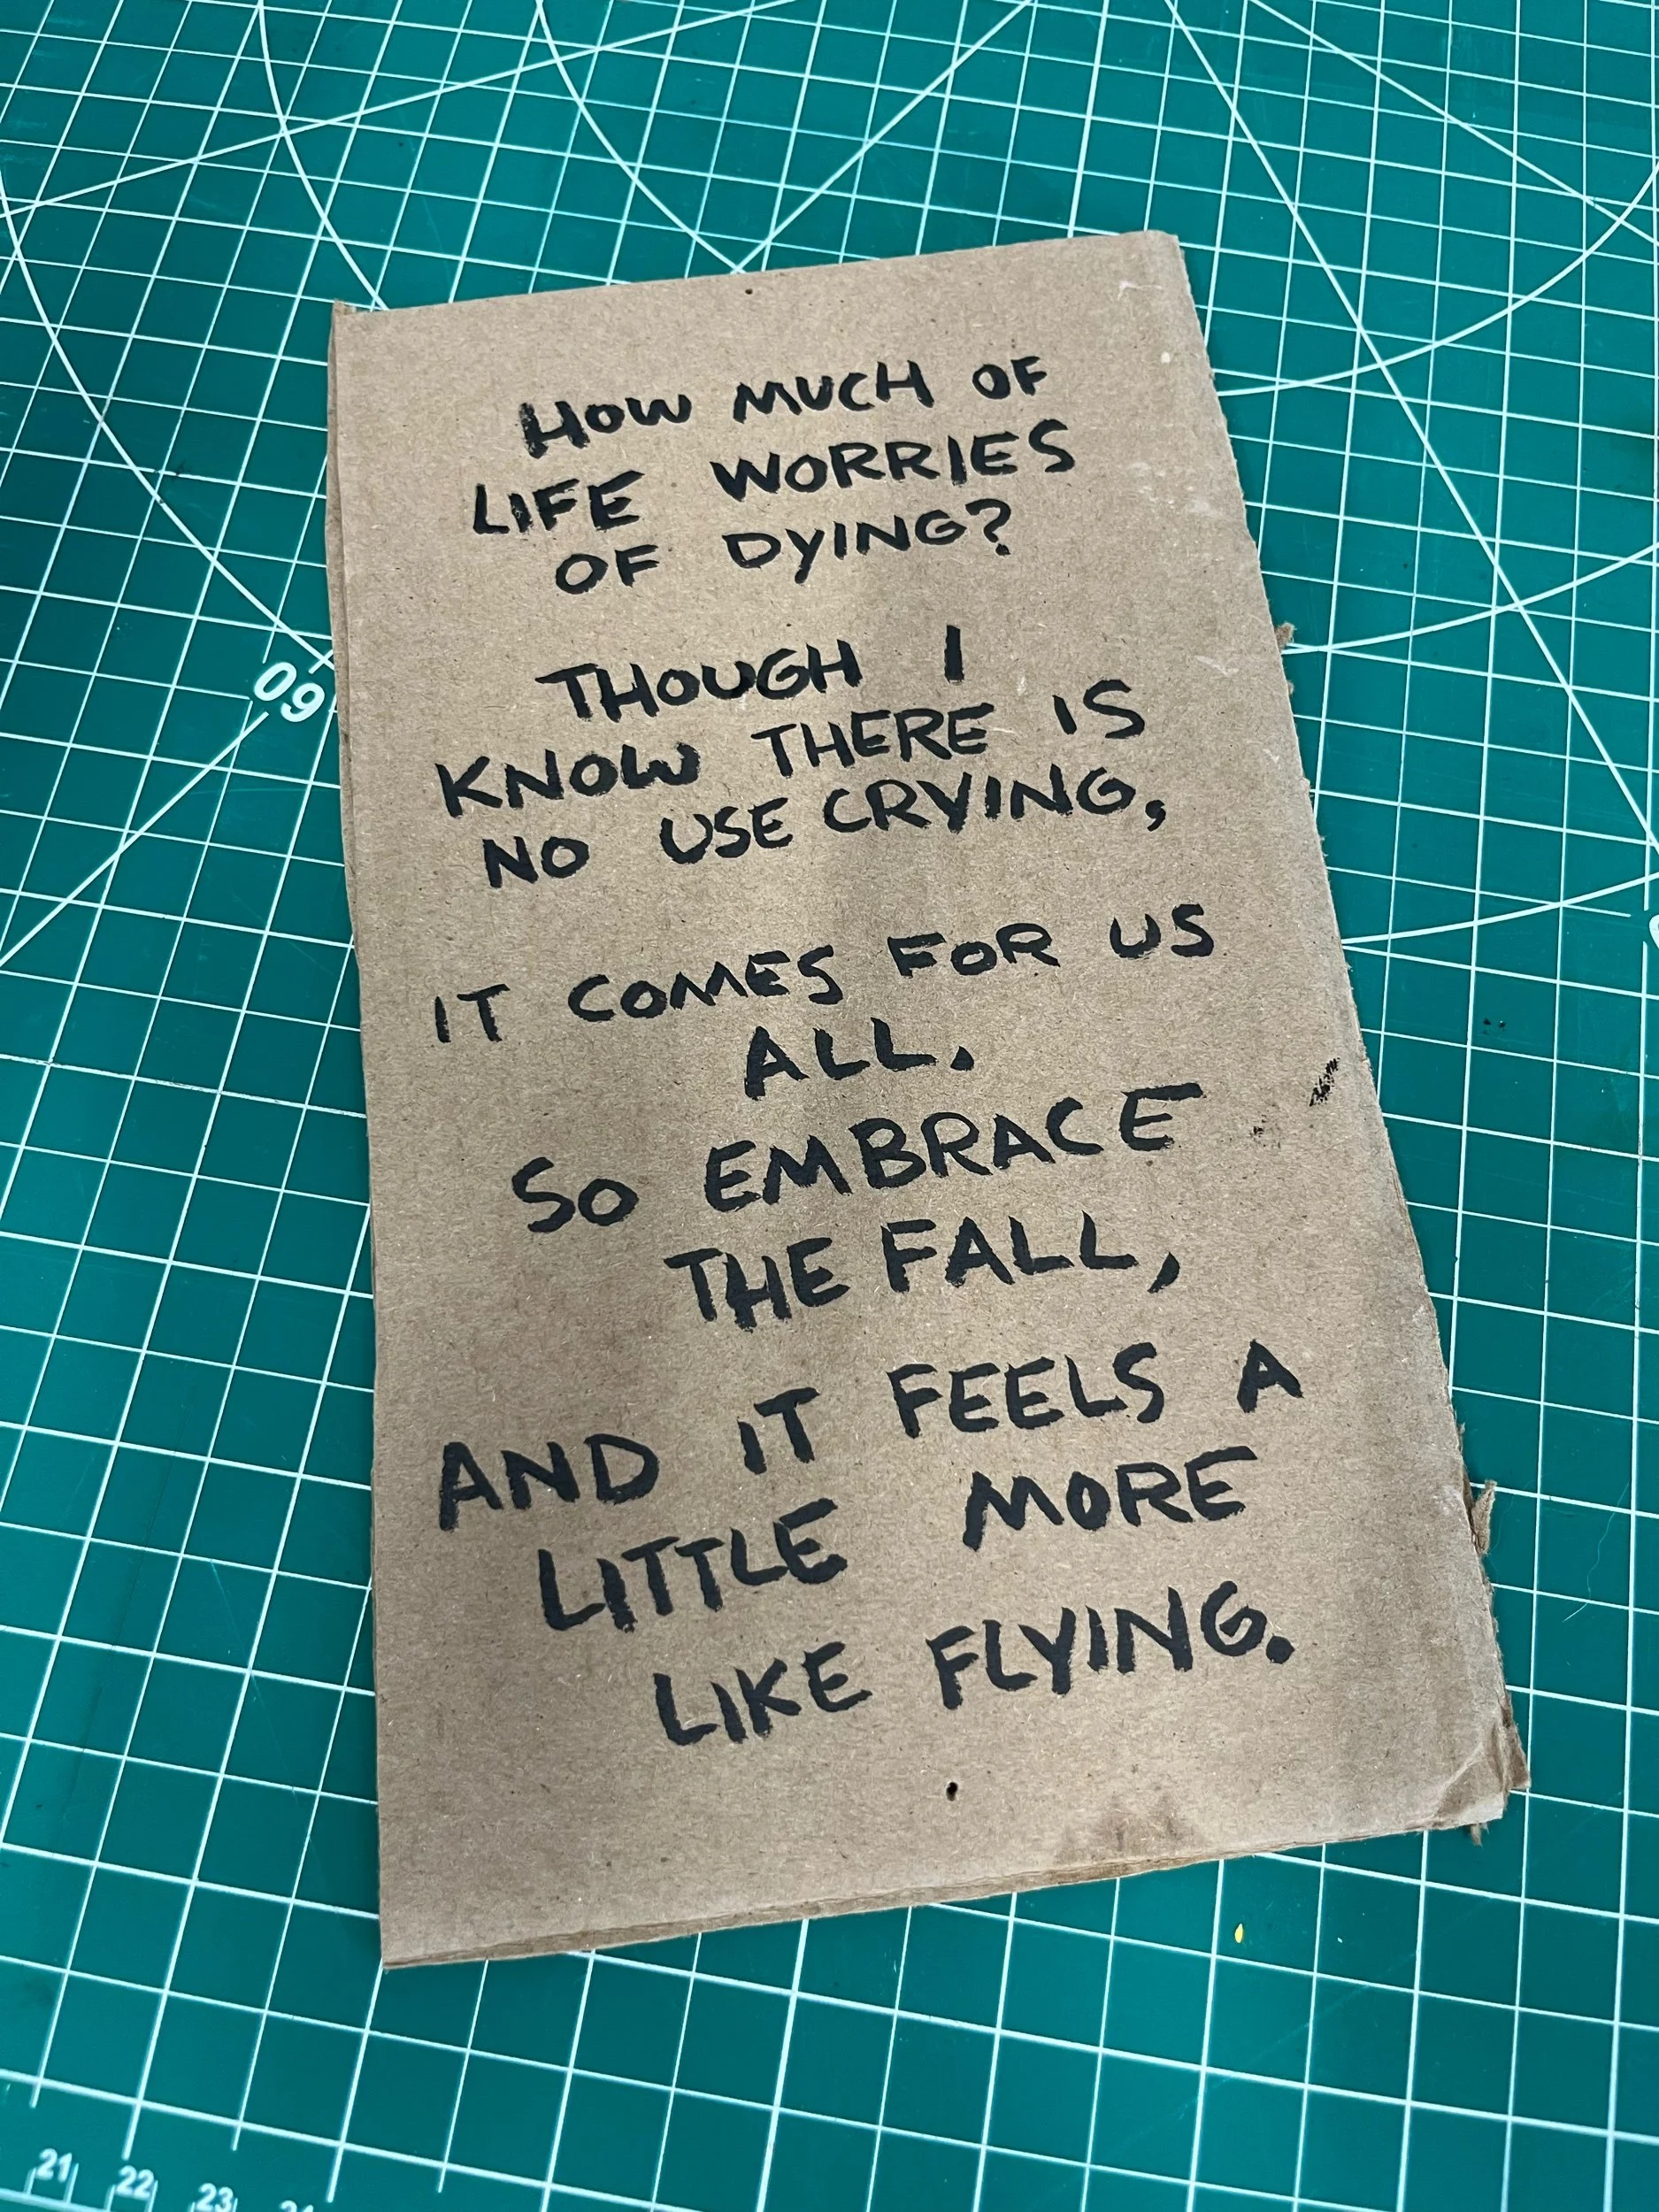 HOW MUCH OF
LIFE WORRIES
OF DYING?
THOUGH I
KNOW THERE IS
NO USE CRYING,
IT COMES FOR US
ALL.
SO EMBRACE
THE FALL,
AND IT FEELS A
LITTLE MORE
LIKE FLYING.
60
21
22
23